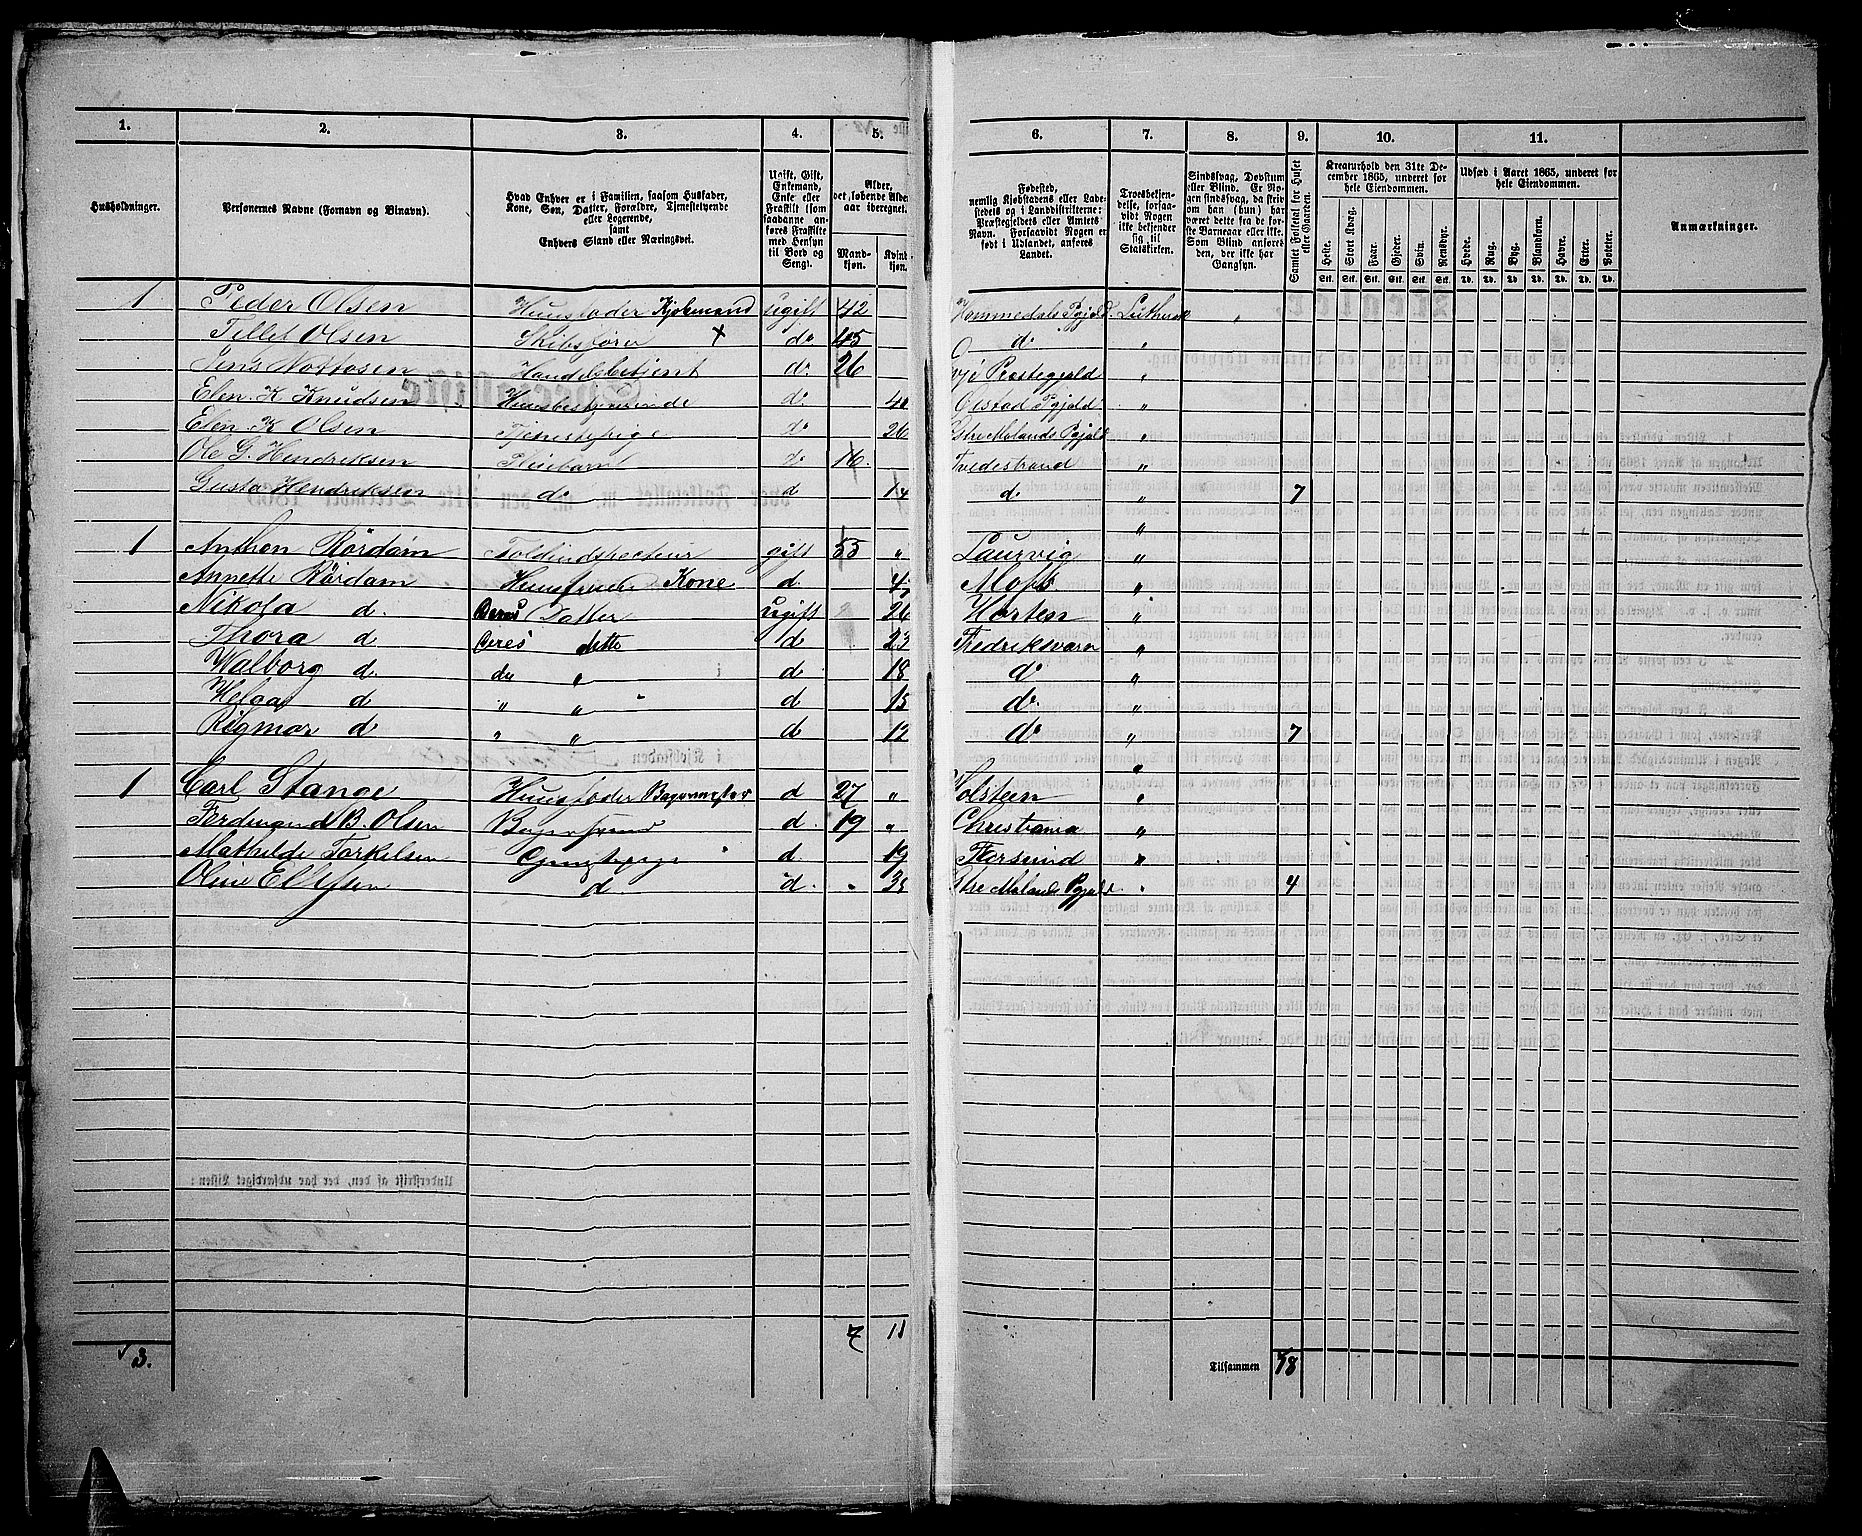 1. 2. 3. 4. 5. 6. 7. 8. 9. 10. 11.
Husholdninger.
Personernes Navne (Fornavn og Binavn).
Hvad Enhver er i Familien, saasom Husfader,
Kone, Søn, Datter, Forældre, Tjenestetyende
eller Logerende,
samt
Enhvers Stand eller Næringsvei.
Ugift, Gift,
Enkemand,
Enke eller
Fraskilt (som
saadanne an-
føres Fraskilte
med Hensyn
til Bord og
Seng).
Alder,
det løbende Alder-
aar iberegnet.
Mand-
kjøn.
Kvind-
kjøn.
Fødested,
nemlig Kjøbstadens eller Lade-
stedets og i Landdistrikterne:
Præstegjeldets eller Amtets
Navn. Forsaavidt Nogen er
født i Udlandet, anføres
Landet.
Troesbekjen-
delse, forsaa-
vidt Nogen
ikke bekjender
sig til
Statskirken.
Sindssvag, Døvstum
eller Blind. Er No-
gen sindssvag, da skriv
om han (hun) har
været dette fra de før-
ste Barneaar eller ikke.
Som Blind anføres
den, der ikke har
Gangsyn.
Samlet Folketal for Huset
eller Gaarden.
Kreaturhold den 31te De-
cember 1865, underet for
hele Eiendommen.
Heste. Stort Kvæg. Faar. Gjeder. Svin. Rensdyr.
Stk. Stk. Stk. Stk. Stk. Stk.
Udsæd i Aaret 1865, underet for
hele Eiendommen.
Hvede. Rug. Byg. Blandkorn. Havre. Erter. Poteter.
Td. Td. Td. Td. Td. Td. Td.
Anmærkninger.
1 Peder Olsen Huusfader Kjøbmand ugift 42 Hommedals Pgjeld Luthersk "
Tellef Olsen Skibsfører × do 45 do "
Jens Nottosen Handelsbetjent do 26 Præstegjeld "
Elen K Knudsen Huusbestyrerinde do 40 Øiestad Pgjeld "
Elen K Olsen Tjenestepige do 26 Østre Molands Pgjeld "
Ole G. Hendriksen Pleiebarn do 16 Tvedestrand "
Gusta Hendriksen do d 14 d. " 7
"
1 Anthon Rördam Toldindspecteur gift 55 " Laurvig "
Annette Rördam Kone d. Moss "
Nikola d. Deres Datter Ugift 26 Horten "
Thora d Deres dette d 23 Fredriksværn "
Walborg d. do " d 18 d "
Helga d " " d 15 d. "
Rigmor d " " d 12 d. " 7
"
1 Carl Stange Huusfader Bagermester d 27 " Holsteen "
Ferdinand B. Olsen Bagersvend d. 19 " Christiania "
Mathilde Torkelsen d. 19 Farsund "
Oline Ellefsen d d. " Østre Molands Pgjeld " 4
7 11
3.
Tilsammen 18